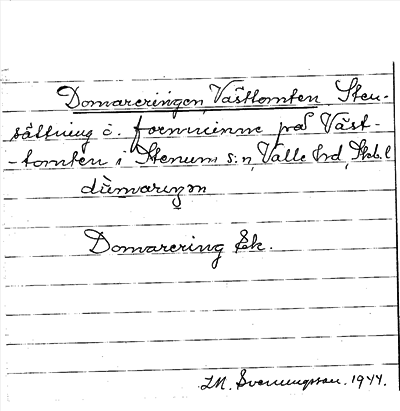 Domareringen, Västtomten Sten-
sättning o. fornminne på Väst-
-tomten i Stenums s:n, Valle hrd, Skb. l
dùmarıŋən
Domarering Ek.
I.M. Svenungsson. 1944.